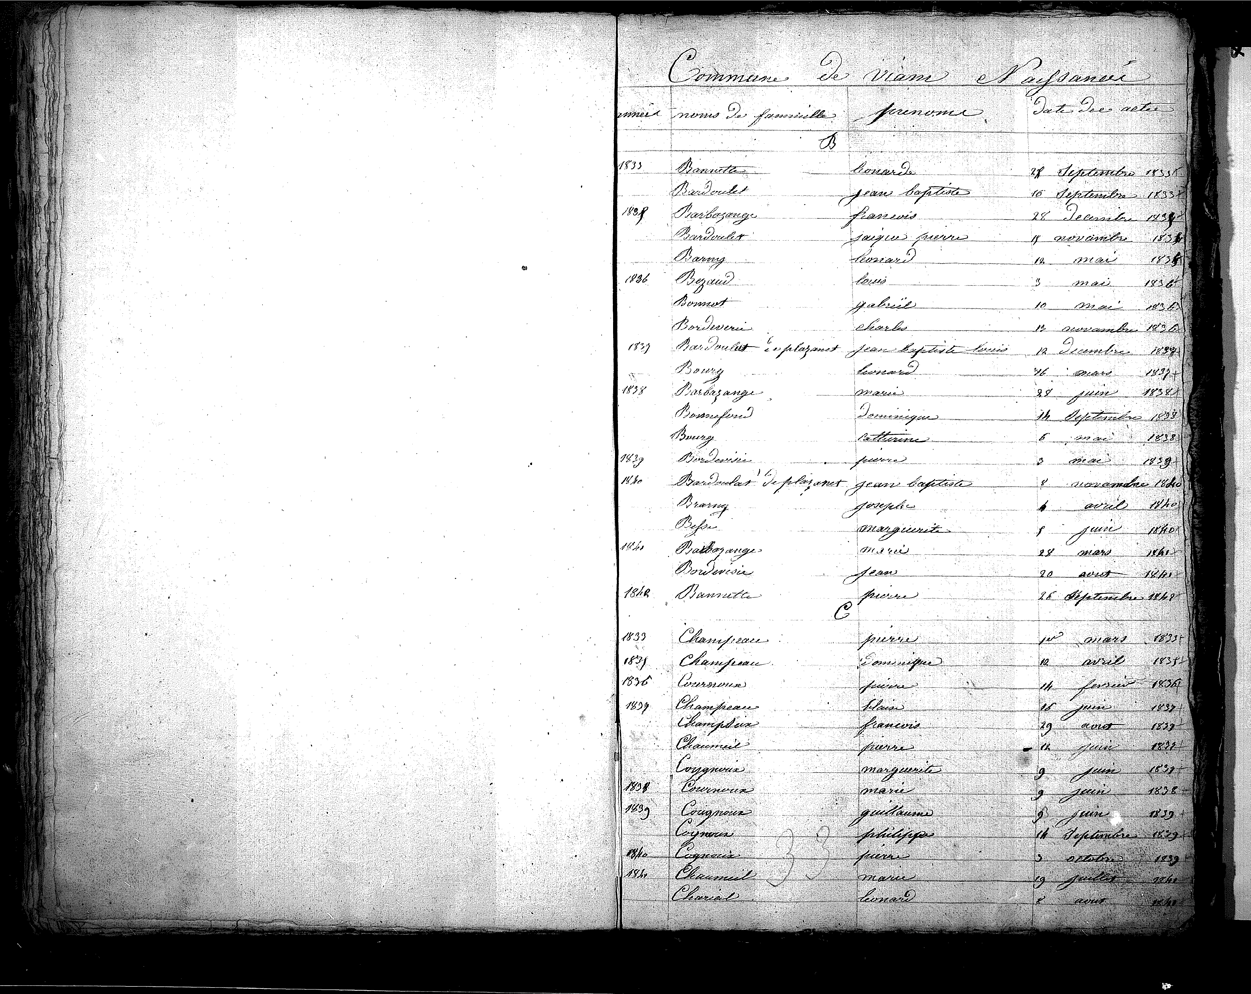 Commune de viam Naissances
année noms de famielle prenoms date dee actee
B
1833 Bannette leonarde 28 Septembre 1833
Bardoulet jean baptiste 16 Septembre 1833
Barbazange francois 28 decembre
Bardoulet jaique pierre 11 novembre
Barny leonard 12 mai
1836 Bezaud louis 3 mai 1836
Bonnot gabriel 10 mai 1836
Bordeverie charles 12 novembre 1836
1837 Bardoulet deplazanet jean baptiste louis 12 decembre 1837
Bourg leonard 16 mars 1837
1838 Barbazange marie 28 juin 1838
Bonnefond dominique 14 Septembre 1838
Bourg catterine 6 mai 1838
1839 Bordevisie pierre 3 mai 1839
1840 Bardoulat deplazanet jean baptiste 8 novembre 1840
Brarny josephe 4 avril 1840
Besse marguerite 8 juin 1840
1841 Barbazange marie 28 mars 1841
Bordevisie jean 20 aout 1841
1842 Bannette pierre 26 Septembre 1842
C
1833 Champeau pierre 1er mars 1833
Champeau dominique 12 avril
1836 Cournoux pierre 14 fevrier 1836
1837 Champeau blaise 16 juin 1837
Champeaux francois 29 aout 1837
Chaumeil pierre 12 juin 1837
Coygnoux marguerite 9 juin 1837
1838 Cournoux marie 9 juin 1838
1839 Cougnoux guillaume 9 juin 1839
Cognoux philippe 14 Septembre 1839
1840 Cognoux pierre 3 octobre 1839
1841 Chaumeil marie 19 juillet 1841
Charial leonard 8 aout 1841
33